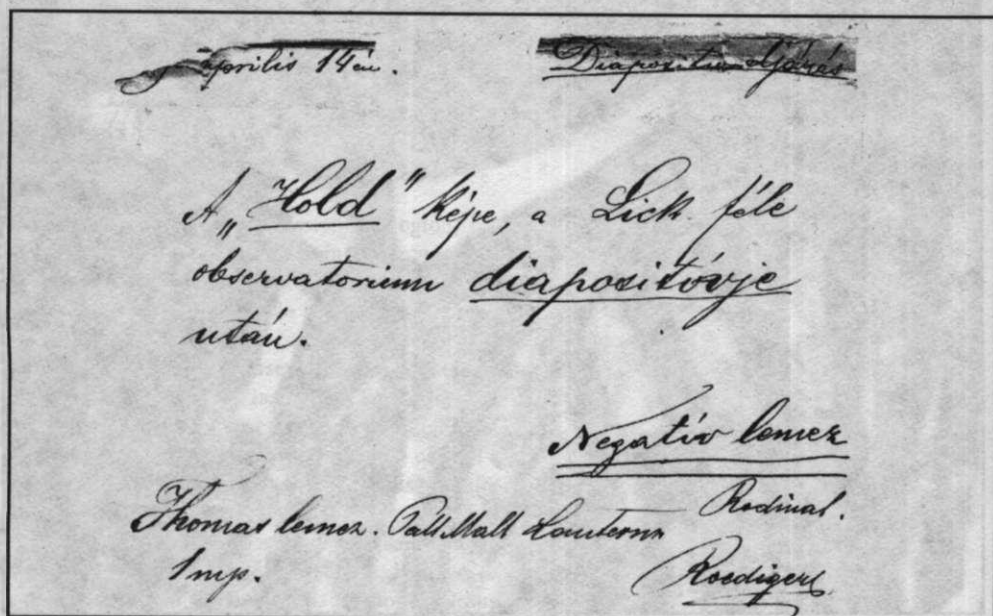 április 14én. Diapositiv eljárás
A „Hold" képe, a Lick féle
observatorium diapositívje
után.
Negatív lemez
Rodinal.
Thomas lemez. Pall Mall
1 mp. Roediger